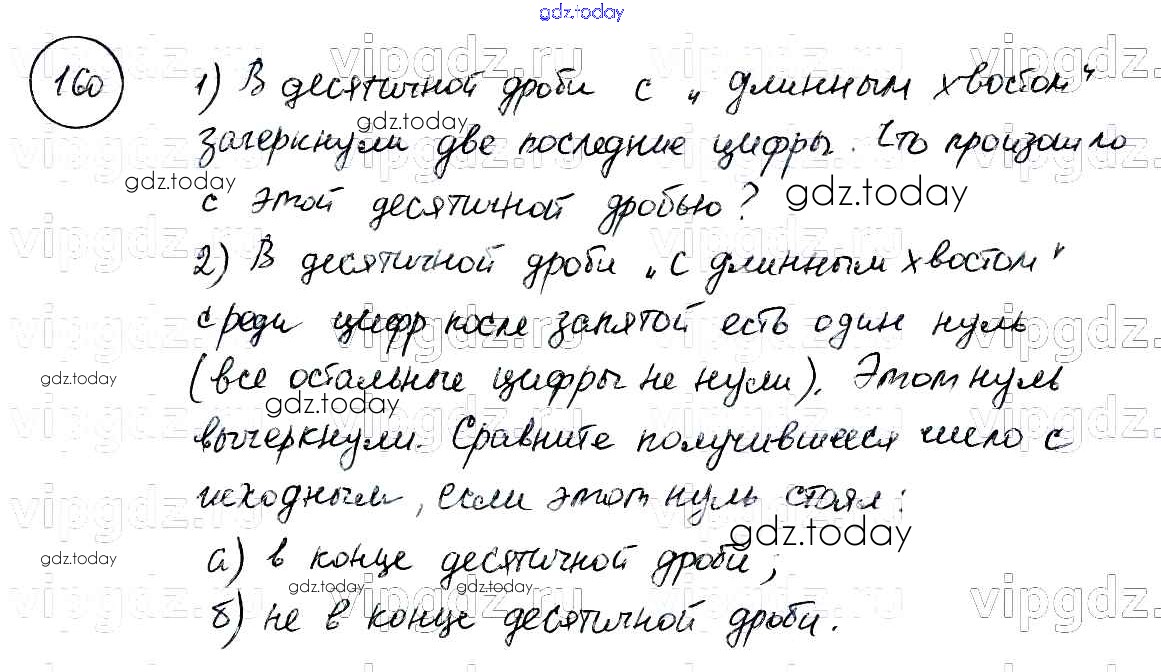 gdz.today
160
1) В десятичной дроби с „длинным хвостом“
зачеркнули две последние цифры. Что произошло
с этой десятичной дробью?
2) В десятичной дроби „с длинным хвостом“
среди цифр после запятой есть один нуль
(все остальные цифры не нули). Этот нуль
вычеркнули. Сравните получившееся число с
исходным, если этот нуль стоял:
а) в конце десятичной дроби;
б) не в конце десятичной дроби.
vipgdz.ru
gdz.today